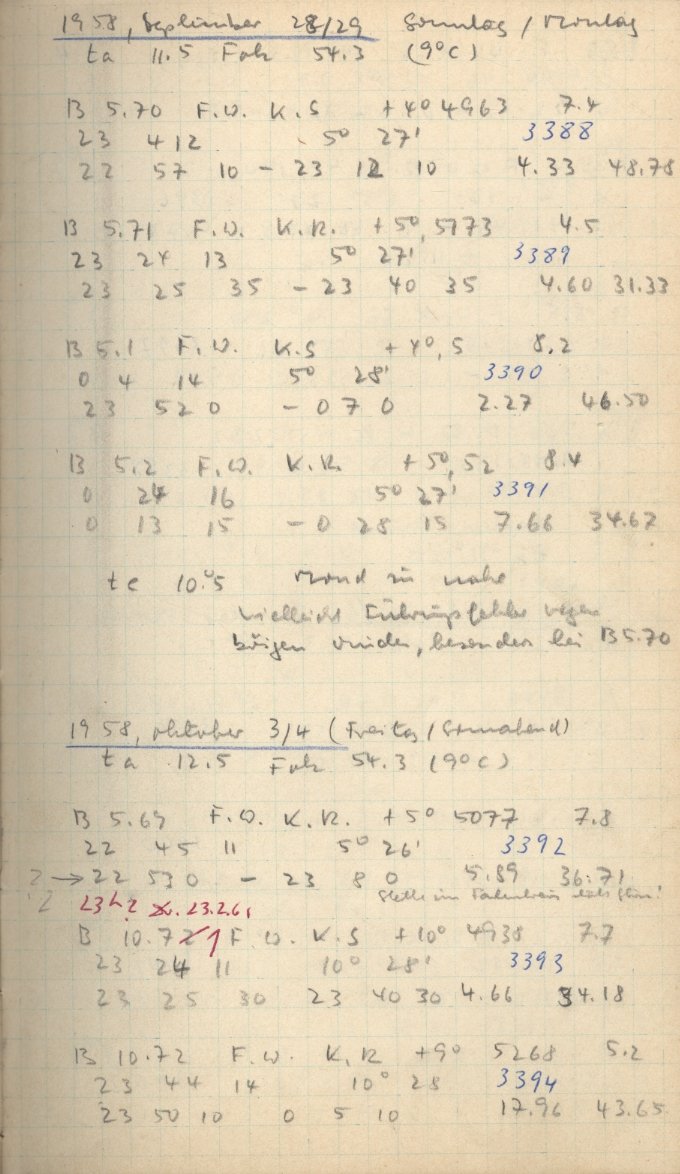 1958, September 28/29 Sonntag / Montag
ta 11.5 Fok 54.3 (9°C)
B 5.70 F.W. K.S +4° 4963 7.4
23 4 12 5° 27' 3388
22 57 10 - 23 12 10 4.33 48.78
B 5.71 F.W. K.R. +5°, 5173 4.5
23 24 13 5° 27' 3389
23 25 35 - 23 40 35 4.60 31.33
B 5.1 F.W. K.S +4°, 5 8.2
0 4 14 5° 28' 3390
23 52 0 - 0 7 0 2.27 46.50
B 5.2 F.W. K.R. +5°, 52 8.4
0 24 16 5° 27' 3391
0 13 15 - 0 28 15 7.66 34.67
te 10.°5 Mond zu nahe
vielleicht Führungsfehler wegen
böigen Windes, besonders bei B 5.70
1958, Oktober 3/4 (Freitag / Sonnabend)
ta 12.5 Fok 54.3 (9°C)
B 5.69 F.W. K.R. +5° 5077 7.8
22 45 11 5° 26' 3392
? → 22 53 0 - 23 8 0 5.89 36.71
? 23h.2 23.2.61
Stelle im
B 10.71 F.W. K.S +10° 4938 7.7
23 24 11 10° 28' 3393
23 25 30 23 40 30 4.66 34.18
B 10.72 F.W. K.R +9° 5268 5.2
23 44 14 10° 28 3394
23 50 10 0 5 10 17.96 43.65